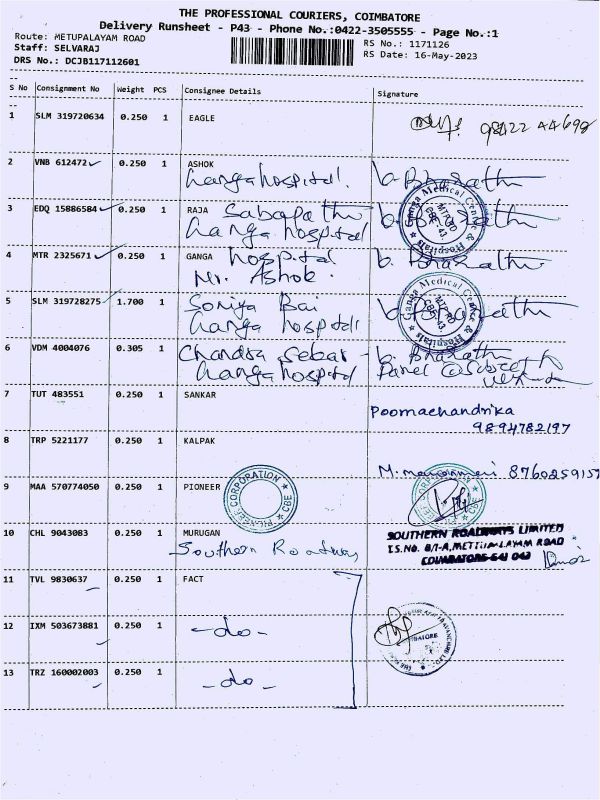 THE PROFESSIONAL COURIERS, COIMBATORE
Delivery Runsheet - P43 - Phone No.:0422-3505555 - Page No.:1
Route: METUPALAYAM ROAD
RS No.: 1171126
Staff: SELVARAJ
RS Date: 16-May-2023
DRS No.: DCJB117112601
S No Consignment No Weight PCS Consignee Details Signature
1 SLM 319720634 0.250 1 EAGLE
98422 44698
2 VNB 612472 0.250 1 ASHOK
Ganga hospital. b. Bharathi
3 EDQ 15886584 0.250 1 RAJA Sabapathi
Ganga hospital
Ganga Medical Centre & Hospitals
MTP RD
CBE-43
4 MTR 2325671 0.250 1 GANGA hospital b. Bharathi
Mr. Ashok.
5 SLM 319728275 1.700 1 Soniya Bai b. Bharathi
Ganga hospital
Ganga Medical Centre & Hospitals
MTP RD
CBE-43
6 VDM 4004076 0.305 1 Chandra Sekar b. Bharathi
Ganga hospital
7 TUT 483551 0.250 1 SANKAR
Poornachandrika
9894782197
8 TRP 5221177 0.250 1 KALPAK
8760259157
9 MAA 570774050 0.250 1 PIONEER
CORPORATION
CBE
10 CHL 9043083 0.250 1 MURUGAN
Southern Roadways
SOUTHERN ROADWAYS LIMITED
T.S.No. 8/1-A, METTUPALAYAM ROAD
COIMBATORE-641 043
11 TVL 9830637 0.250 1 FACT
12 IXM 503673881 0.250 1 -do-
13 TRZ 160002003 0.250 1 -do-